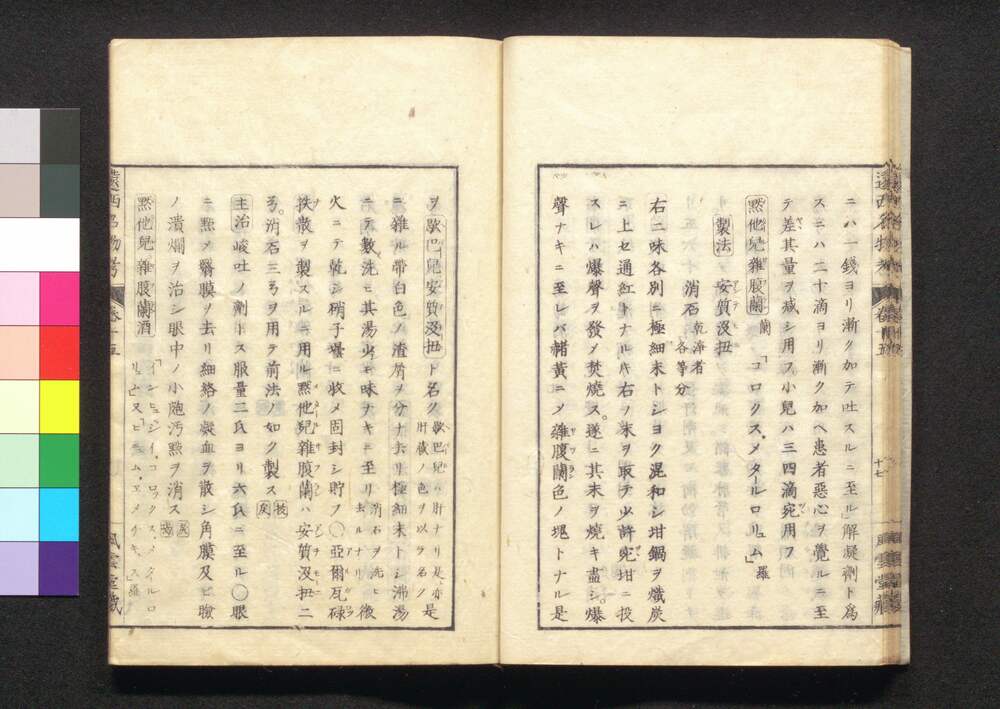 ニハ一錢ヨリ漸ク加テ吐スルニ至ル」解凝劑ト爲
スニハ二十滴ヨリ漸ク加ヘ患者惡心ヲ覺ルニ至
テ差其量ヲ減シ用フ小兒ハ三四滴宛用フ
黙他兒雜腹蘭 蘭 「コロクス、メタールロリュム」羅
製法 安質没扭
消石 乾淨者 各等分
右二味各別ニ極細末トシヨク混和シ坩鍋ヲ熾炭
ニ上セ通紅トナル片右ノ末ヲ取テ少許宛坩ニ投
スレハ爆聲ヲ發メ焚燒ス。遂ニ其末ヲ燒キ盡シ爆
聲ナキニ至レバ赭黃ニメ雜腹蘭色ノ塊トナル是
十七
風雲堂藏
ヲ歇巴兒安質没扭ト名ク 歇巴兒ハ肝ナリ是亦肝藏ノ色ヲ以ラ名ク 是
ニ雜ル帶白色ノ渣屑ヲ分ナ去リ極細末トシ沸湯
ニテ數洗シ其湯少モ味ナキニ至リ 消石ヲ洗ヒ去ルナリ 後
火ニテ乾シ硝子壜ニ收メ固封シ貯フ○亞爾瓦碌
扶散ヲ製スルニ用ル黙他兒雜腹蘭ハ安質没扭二
弓。消石三弓ヲ用テ前法ノ如ク製ス
主治峻吐ノ劑トス服量二氏ヨリ六氏ニ至ル○眼
ニ點メ翳膜ヲ去リ細絡ノ凝血ヲ散シ角膜及ヒ瞼
ノ潰爛ヲ治シ眼中ノ小皰汚黙ヲ消ス
黙他兒雜腹蘭酒
遠西名物考
卷十五
風雲堂藏